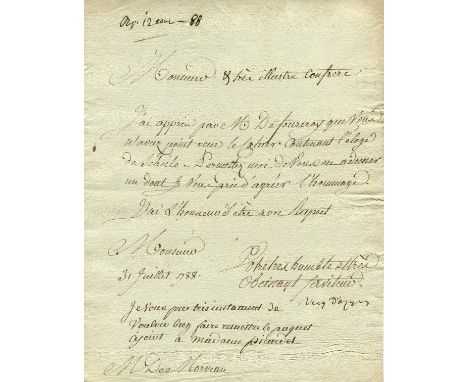 Rep. 12 aou – 88
Monsieur & très illustre confrere
J'ai appris par M De fourcroy que Vous
n'avez point reçu le cahier contenant l'éloge
de Schéele. Permettez moi de Vous en adresser
un dont je Vous prie d'agréer l'hommage.
J'ai L'honneur d'être avec Respect
Monsieur
Votre très humble et très
31 Juillet 1788.
Obeissant serviteur.
Vicq d'azyr
Je Vous prie très instament de
Vouloir bien faire remettre le paquet
à madame picardet
M De Morveau